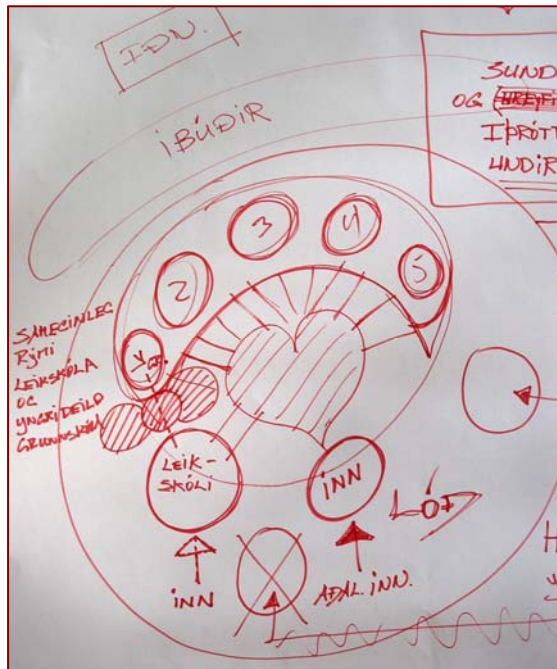 IÐN.
ÍBÚÐIR
SUND
OG HREYFI
ÍÞRÓTT
UNDIR
2
3
4
5
SAMEGINLEG
RÝMI
LEIKSKÓLA
OG
YNGRI DEILD
GRUNNSKÓLA
LEIK-
SKÓLI
INN
LÓÐ
INN
AÐAL. INN.
H